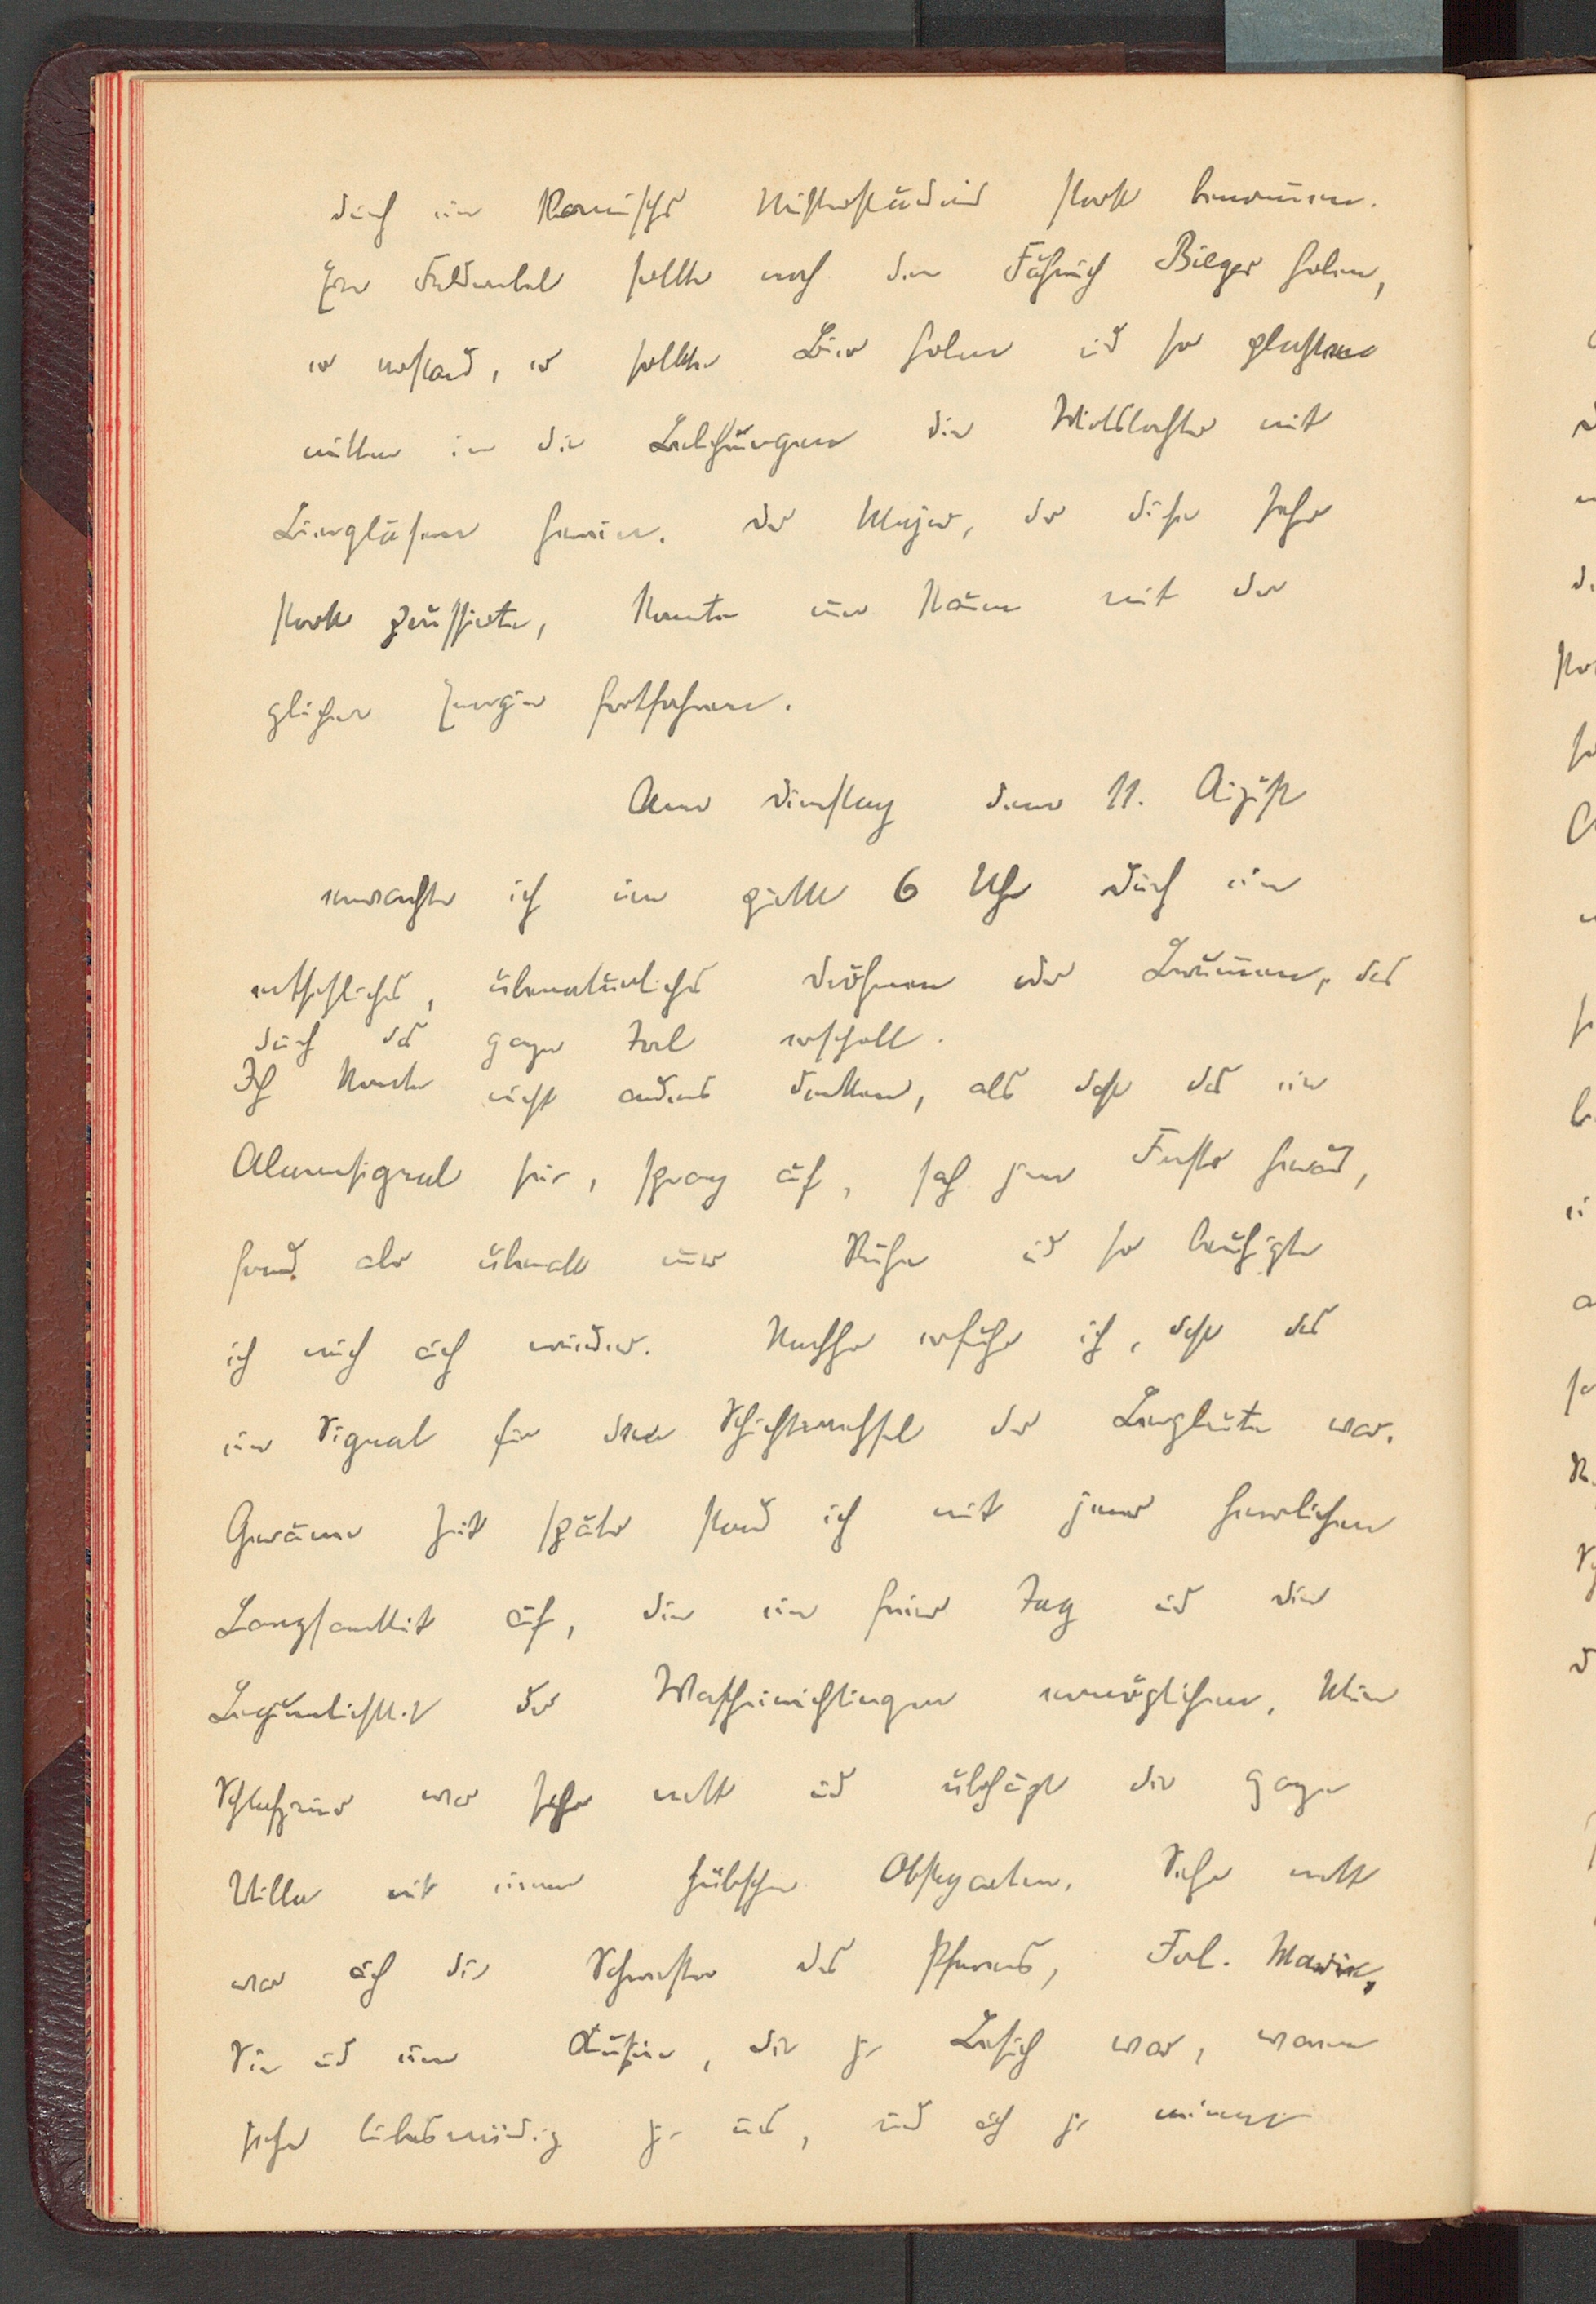 durch ein komisches Missverständnis stark benommen.
Ein Feldwebel sollte noch den Fähnrich Bieger holen,
er verstand, er sollte Bier holen und so platzten
mitten in die Belehrungen die Wirtstochter mit
Biergläsern herein. Der Major, der diese sehr
stark  konnte nur kaum mit der
gleichen Energie fortfahren.
Am Dienstag dem 11. August
erwachte ich um punkt 6 Uhr durch ein
entsetzliches, übernatürliches Dröhnen oder Brummen, das
durch das ganze Tal erscholl.
Ich konnte nicht anders denken, als dass das ein
Alarmsignal sei, sprang auf, sah zum Fenster heraus,
fand aber überall nur Ruhe und so beruhigte
ich mich auch wieder. Nachher erfuhr ich, dass das
ein Signal für den Schichtwechsel der Bergleute war.
Geraume Zeit später stand ich mit jener herrlichen
Langsamkeit auf, die ein freier Tag und die
Bequemlichkeit der Wascheinrichtungen ermöglichen. Mein
 war sehr nett und überhaupt die ganze
Villa mit einem hübschen Obstgarten. Sehr nett
war auch die Schwester des Pfarrers, Frl. Marie,
Sie und eine Kusine, die zu Besuch war, waren
sehr liebenswürdig zu uns, und auch zu meinem